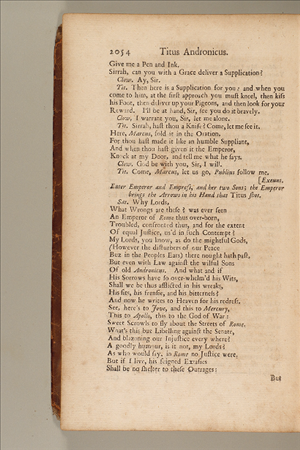 2054 Titus Andronicus.
Give me a Pen and Ink.
Sirrah, can you with a Grace deliver a Supplication?
Clow. Ay, Sir.
Tit. Then here is a Supplication for you: and when you
come to him, at the first approach you must kneel, then kiss
his Foot, then deliver up your Pigeons, and then look for your
Reward. I'll be at hand, Sir, see you do it bravely.
Clow. I warrant you, Sir, let me alone.
Tit. Sirrah, hast thou a Knife? Come, let me see it.
Here, Marcus, fold it in the Oration,
For thou hast made it like an humble Suppliant,
And when thou hast given it the Emperor,
Knock at my Door, and tell me what he says.
Clow. God be with you, Sir, I will.
Tit. Come, Marcus, let us go, Publius follow me.
[Exeunt.
Enter Emperor and Empress, and her two Sons; the Emperor
brings the Arrows in his Hand that Titus shot.
Sat. Why Lords,
What Wrongs are these? was ever seen
An Emperor of Rome thus over-born,
Troubled, confronted thus, and for the extent
Of equal Justice, us'd in such Contempt?
My Lords, you know, as do the mightful Gods,
(However the disturbers of our Peace
Buz in the Peoples Ears) there nought hath past,
But even with Law against the wilful Sons
Of old Andronicus. And what and if
His Sorrows have so over-whelm'd his Wits,
Shall we be thus afflicted in his wreaks,
His fits, his frensie, and his bitterness?
And now he writes to Heaven for his redress.
See, here's to Jove, and this to Mercury,
This to Apollo, this to the God of War:
Sweet Scrowls to fly about the Streets of Rome.
What's this but Libelling against the Senate,
And blazoning our Injustice every where?
A goodly humour, is it not, my Lords?
As who would say, in Rome no Justice were.
But if I live, his feigned Extasies
Shall be no shelter to these Outrages:
But